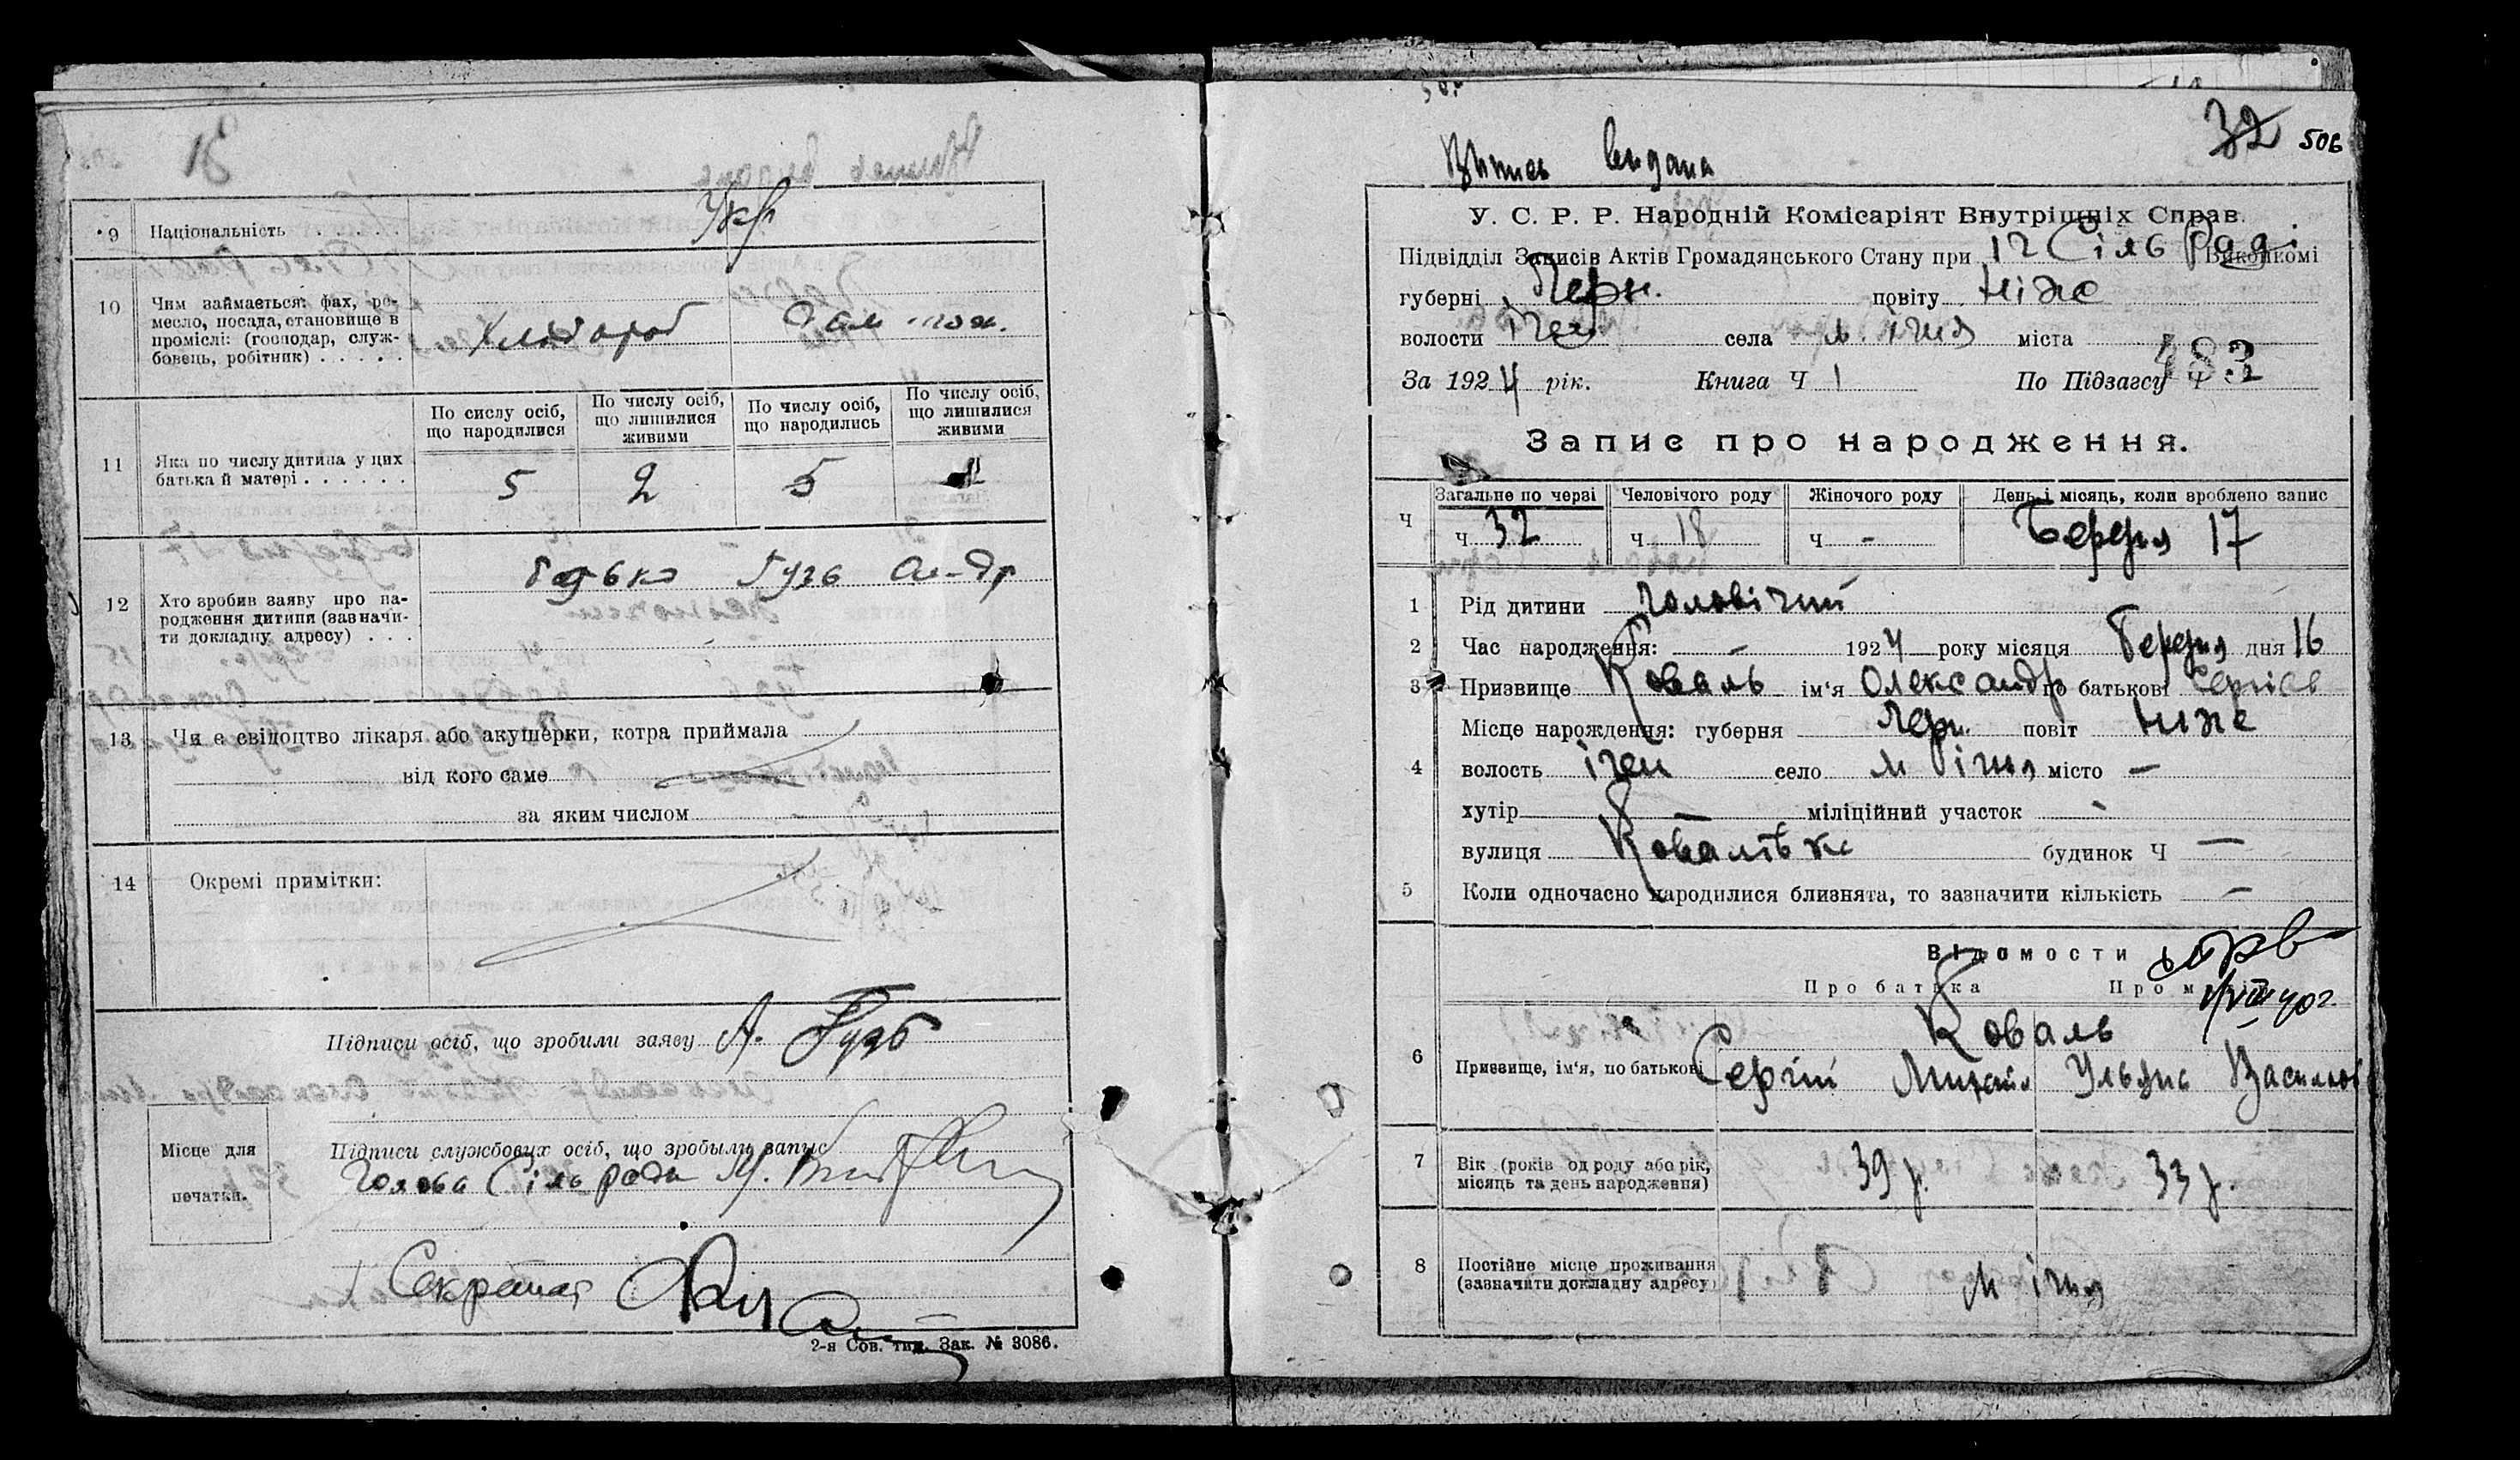 9 Національність . . . . . Укр
10 Чим займається: фах, ре-
месло, посада, становище в
промислі: (господар, служ-
бовець, робітник) . . . . .
Хлібороб
По сислу осіб, що народилися
По числу осіб, що лишилися живими
По числу осіб, що народились
По числу осіб, що лишилися живими
11 Яка по числу дитина у цих
батька й матері . . . . . .
5 2 5
12 Хто зробив заяву про на-
родження дитини (зазначи-
ти докладну адресу) . . .
батько Гузь Ол-др
13 Чи є свідоцтво лікаря або акушерки, котра приймала
від кого саме
за яким числом
14 Окремі примітки:
Підписи осіб, що зробили заяву А. Гузь
Місце для
печатки.
Підписи службових осіб, що зробыли запис
Голова Сільради М.
Секретар
2-я Сов. тип. Зак. № 3086.
32 506
Выпись выдана
У. С. Р. Р. Народній Комісаріят Внутрішніх Справ.
Підвідділ Записів Актів Громадянського Стану при 1 Іч Сільраді Виконкомі
губерні Черн. повіту Ніжс
волости Ічен села м. Ічня міста
За 1924 рік. Книга Ч 1 По Підзагсу Ч 483
Запис про народження.
Ч Загальне по черзі Человічого роду Жіночого роду День і місяць, коли зроблено запис
Ч 32 Ч 18 Ч - Березня 17
1 Рід дитини Чоловічий
2 Час народження: - 1924 року місяця Березня дня 16
3 Призвище Коваль ім'я Олександр по батькові Сергієв
4 Місце нарождення: губерня Черн. повіт Ніжс
волость Ічен село м Ічня місто —
хутір — міліційний участок -
вулиця Ковалівка будинок Ч —
5 Коли одночасно народилися близнята, то зазначити кількість —
Відомости
Про батька Про матір
6 Призвище, ім'я, по батькові
Коваль
Сергій Михайл Ульяна Василів
7 Вік (років од роду або рік,
місяць та день народження)
39 р. 33 р.
8 Постійне місце проживання
(зазначити докладну адресу)
м Ічня